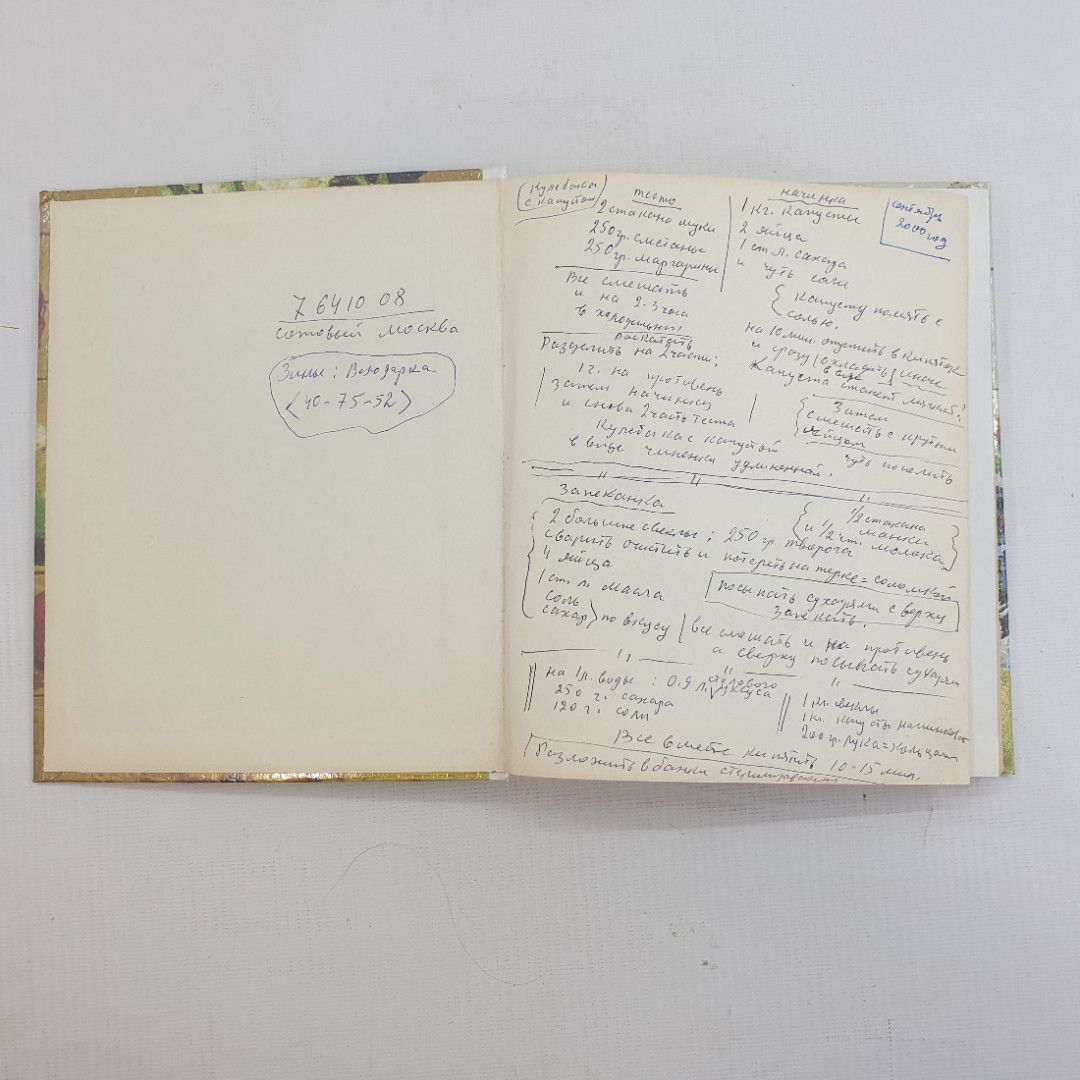 7 641008
сотовый Москва
Зины:
<40-75-52>
Кулебяка
с капустой
тесто
2 стакана муки
250 гр. сметаны
250 гр. маргарины
Все смешать
и на 2-3 часа
в холодильник
раскатать
Разделить на 2 части:
1г. на противень
Затем начинку
и снова 2 часть теста
Кулебяка с капустой
в виде удлиненной.
начинка
1 кг. капусты
2 яйца
1 ст. л. сахара
и чуть соли
сентябрь
2000 год
Капусту помять с
солью.
на 10 мин. опустить в кипяток
и сразу охладить иначе
в воде
Капуста станет мягкой!
Затем
смешать с крутым
яйцом
чуть посолить
Запеканка
2 большие свеклы; 250 гр. творога
1/2 стакана
манки
и 1/2 ст. молока
сварить очистить и потереть на терке = соломкой
4 яйца
1 ст. л. масла
соль
сахар } по вкусу
посыпать сухарями с верху
Запекать.
все смешать и на противень
а сверху посыпать сухарями
на 1 л. воды : 0.9 л. столового уксуса
250 г. сахара
120 г. соли
1 кг. свеклы
1 кг. капусты нашинковать
200 гр. лука = кольцами
Все вместе кипятить 10-15 мин.
Разложить в банки